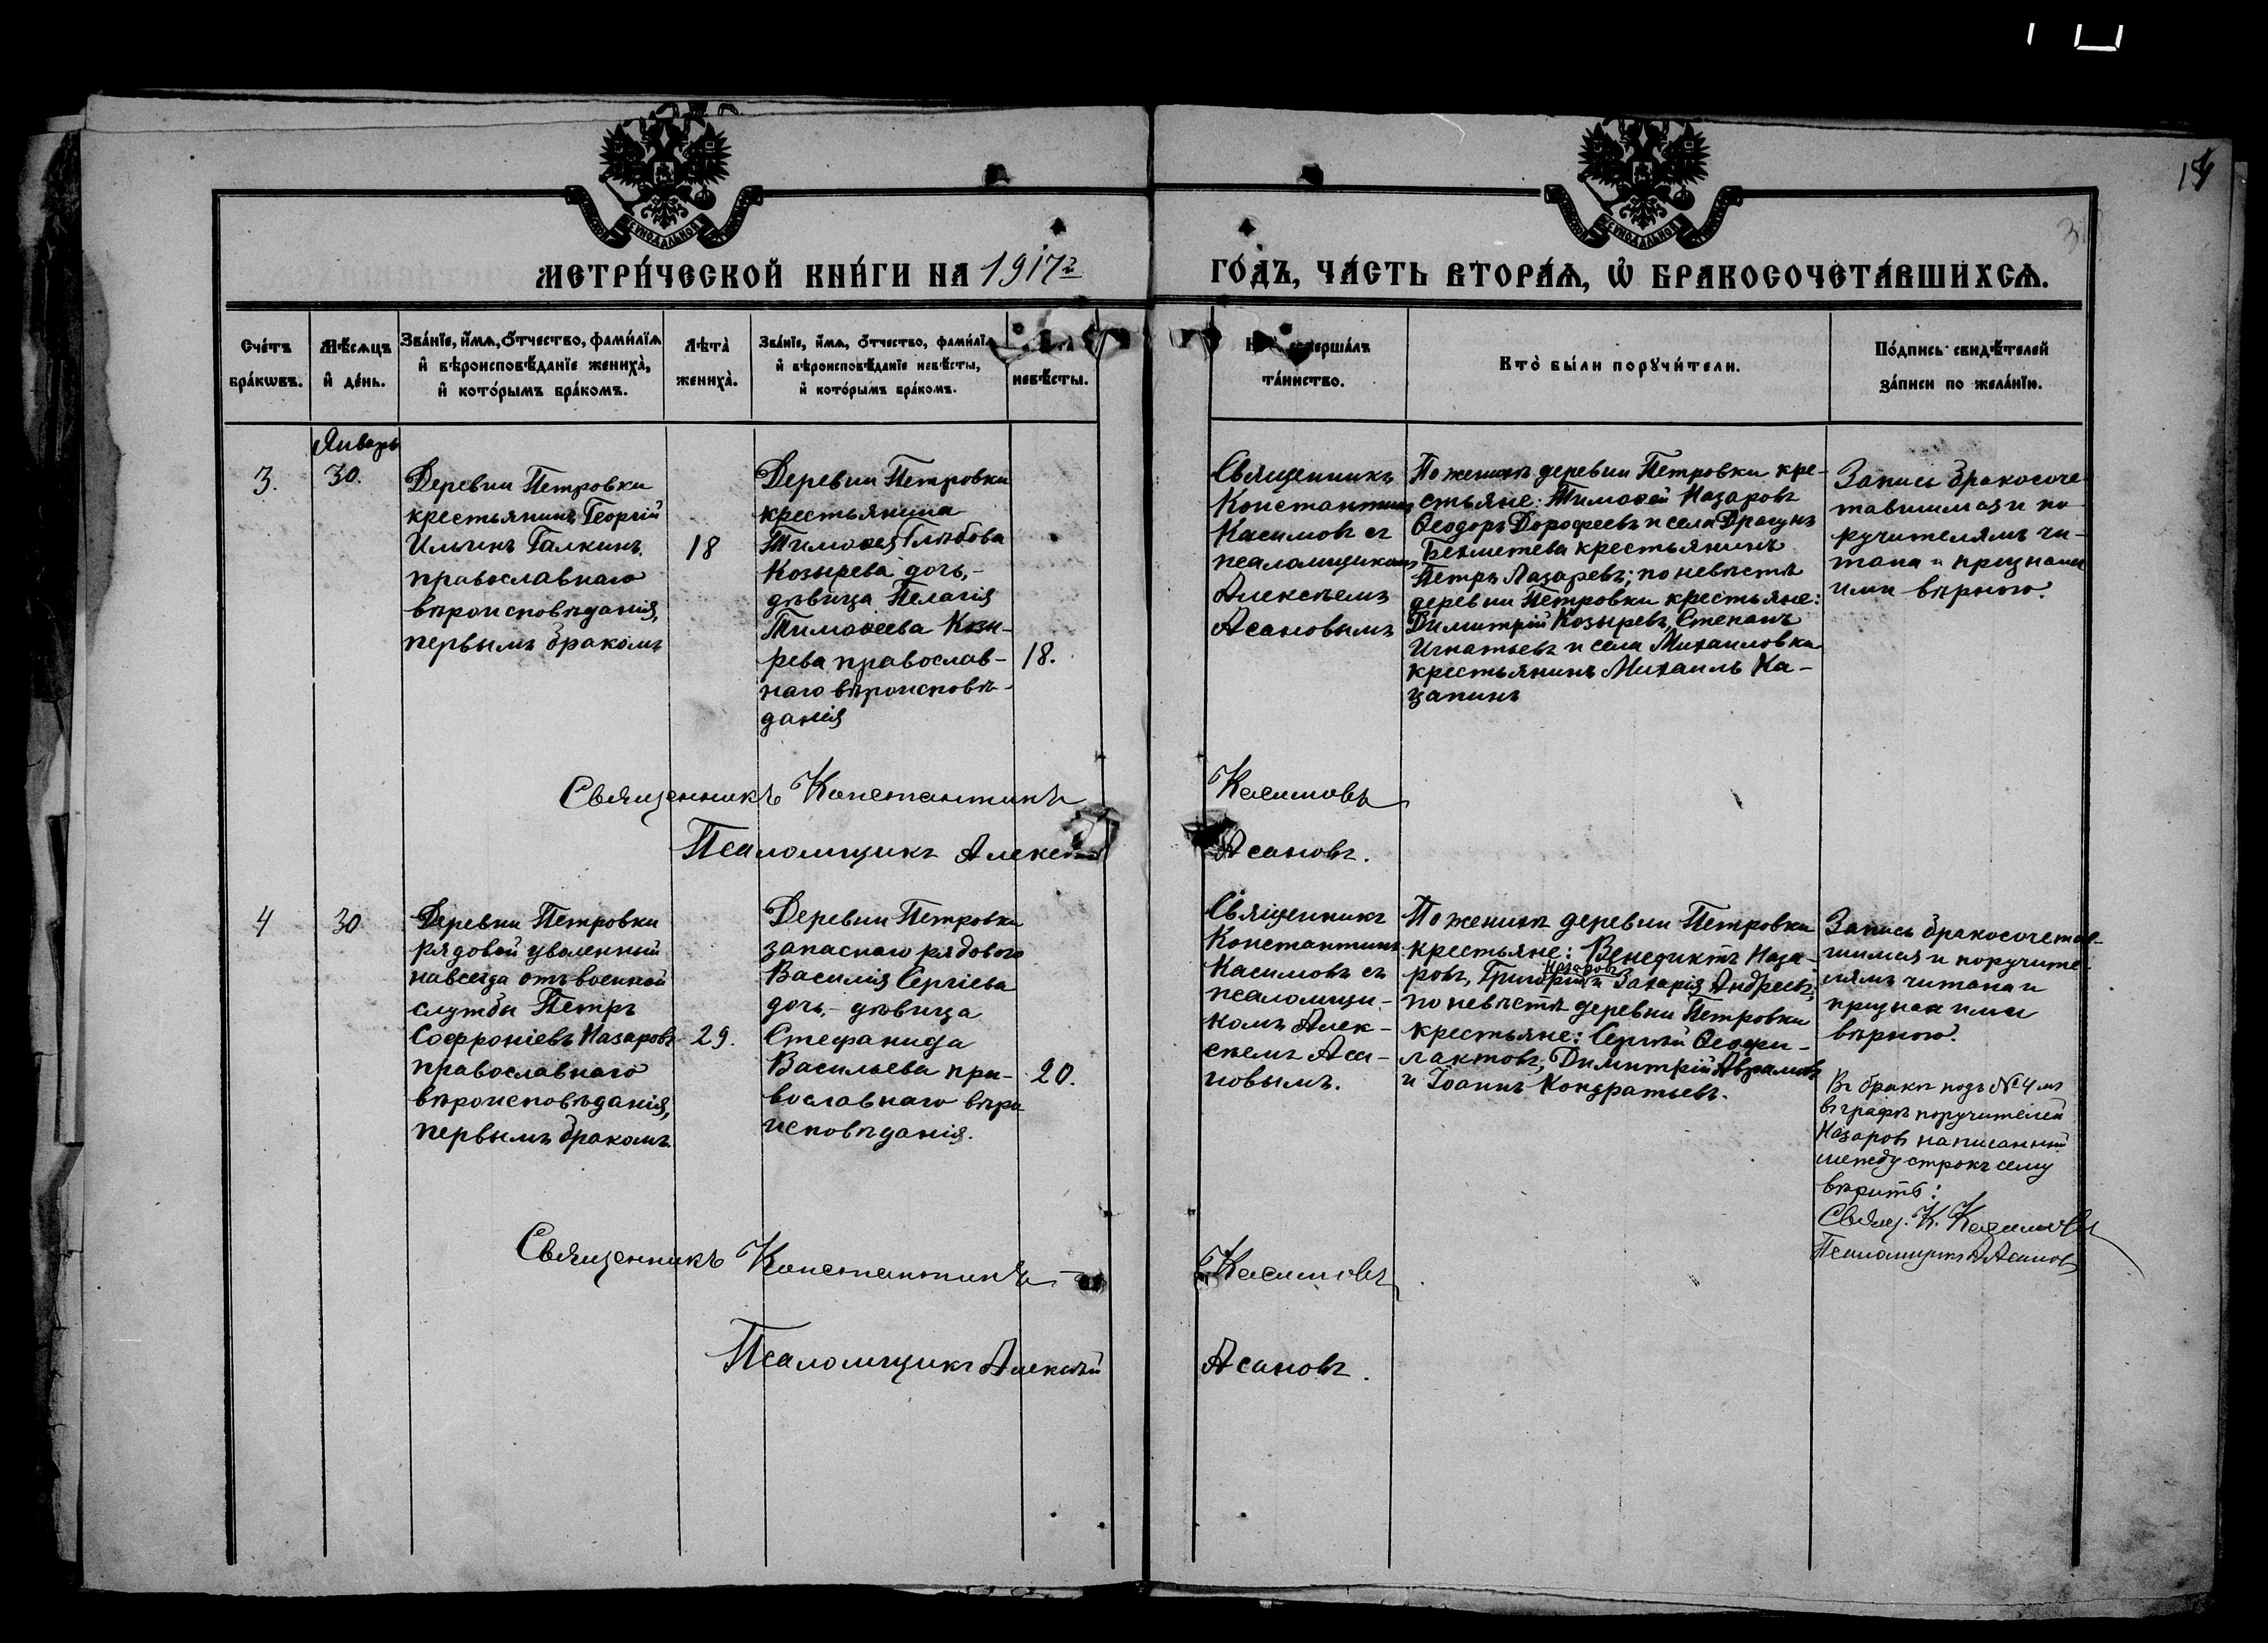 МЕТРИ́ЧЕСКОЙ КНИ́ГИ НА 1917 г.
ГО́ДЪ, ЧА́СТЬ ВТОРА́Я, Ѡ҆ БРАКОСОЧЕТА́ВШИХСѦ.
Сче́тъ
бра́кѡвъ.
Мѣ́сяцъ
и҆ де́нь.
Зва́нїе, и҆́мѧ, ѻ҆́тчество, фами́лїѧ
и҆ вѣроисповѣ́данїе жениха̀,
и҆ кото́рымъ бра́комъ.
Лѣта̀
жениха̀.
Зва́нїе, и҆́мѧ, ѻ҆́тчество, фами́лїѧ
и҆ вѣроисповѣ́данїе невѣ́сты,
и҆ кото́рымъ бра́комъ.
невѣ́сты.
та́инство.
Кто̀ бы́ли порꙋчи́тели.
По́дпись свидѣ́телей
за́писи по жела́нїю.
Январь
3.
30.
Деревни Петровки
крестьянинъ Георгій
Ильинъ Галкинъ,
православнаго
вѣроисповѣданія,
первымъ бракомъ
18
Деревни Петровки
крестьянина
Тимоѳея Глѣбова
Козырева дочь,-
дѣвица Пелагія
Тимоѳеева Козы-
рева православ-
наго вѣроисповѣ-
данія
18.
Священникъ
Константинъ
Касимовъ съ
псаломщикомъ
Алексѣемъ
Асановымъ
По женихѣ деревни Петровки кре-
стьяне: Тимоѳей Назаровъ
Ѳеодоръ Дорофеевъ и села Драгунъ
Бехметева крестьянинъ
Петръ Лазаревъ; по невѣстѣ
деревни Петровки крестьяне:
Димитрій Козыревъ, Степанъ
Игнатьевъ и села Михаиловки
крестьянинъ Михаилъ Ка-
цапинъ
Запись бракосоче-
тавшимся и по-
ручителямъ чи-
тана и признана
ими вѣрною.
Священникъ Константинъ Касимовъ
Псаломщикъ Алексѣй Асановъ.
4
30
Деревни Петровки
рядовой уволенный
навсегда отъ военной
службы Петръ
Софроніевъ Назаровъ
православнаго
вѣроисповѣданія,
первымъ бракомъ
29.
Деревни Петровки
запаснаго рядового
Василія Сергіева
дочь,- дѣвица
Стефанида
Васильева пра-
вославнаго вѣро-
исповѣданія.
20.
Священникъ
Константинъ
Касимовъ съ
псаломщи-
комъ Алек-
сѣемъ Аса-
новымъ.
По женихѣ деревни Петровки
крестьяне: Венедиктъ Наза-
Назаровъ
ровъ, Григорій и Захарія Андреевъ;
по невѣстѣ деревни Петровки
крестьяне: Сергѣй Ѳеофи-
лактовъ, Димитрій Аврамовъ
и Іоаннъ Кондратьевъ.
Запись бракосочетав-
шимся и поручите-
лямъ читана и
признан ими
вѣрною.
Въ бракѣ подъ №4 мъ
въ графѣ поручителей
Назаровъ написанный
между строкъ сему
вѣрить:
Свящ. К. Касимовъ
Псаломщикъ А Асановъ
Священникъ Константинъ Касимовъ
Псаломщикъ Алексѣй Асановъ.